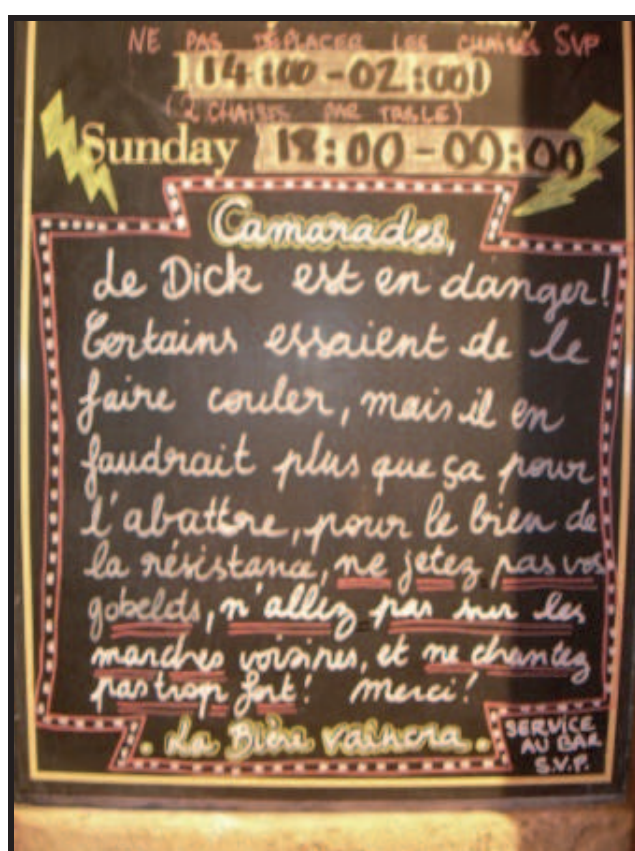 NE PAS DÉPLACER LES CHAISES SVP
14:00-02:00
(2 CHAISES PAR TABLE)
Sunday 18:00-00:00
Camarades,
Le Dick est en danger!
Certains essaient de le
faire couler, mais il en
faudrait plus que ça pour
l'abattre, pour le bien de
la résistance, ne jetez pas vos
gobelets, n'allez pas sur les
marches voisines, et ne chantez
pas trop fort! Merci!
. La Bière vaincra.
SERVICE
AU BAR
S.V.P.